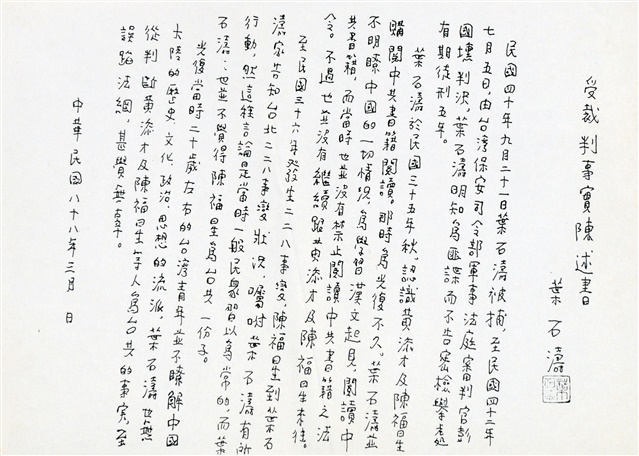 受裁判事實陳述書
葉石濤
民國四十年九月二十一日葉石濤被捕,至民國四十二年
七月五日,由台灣保安司令部軍事法庭審判官彭
國壎判決,葉石濤明知為匪諜而不告密檢舉處
有期徒刑五年。
葉石濤於民國三十五年秋,認識黃添才及陳福生
購閱中共書籍閱讀。那時為光復不久。葉石濤並
不明瞭中國的一切情況,為學習漢文起見,閱讀中
共書籍,而當時也並沒有禁止閱讀中共書籍之法
令。不過也並沒有繼續跟黃添才及陳福生來往。
至民國三十六年發生二二八事變,陳福生到葉石
濤家告知台北二二八事變狀況,囑咐葉石濤有所
行動,然這種言論是當時一般民眾習以為常的,而葉
石濤也並不覺得陳福生為台共一份子。
光復當時二十歲左右的台灣青年並不瞭解中國
大陸的歷史、文化、政治、思想的流派,葉石濤也無
從判斷黃添才及陳福生等人為台共的事實,至
誤蹈法網,甚覺無辜。
中華民國八十八年三月 日